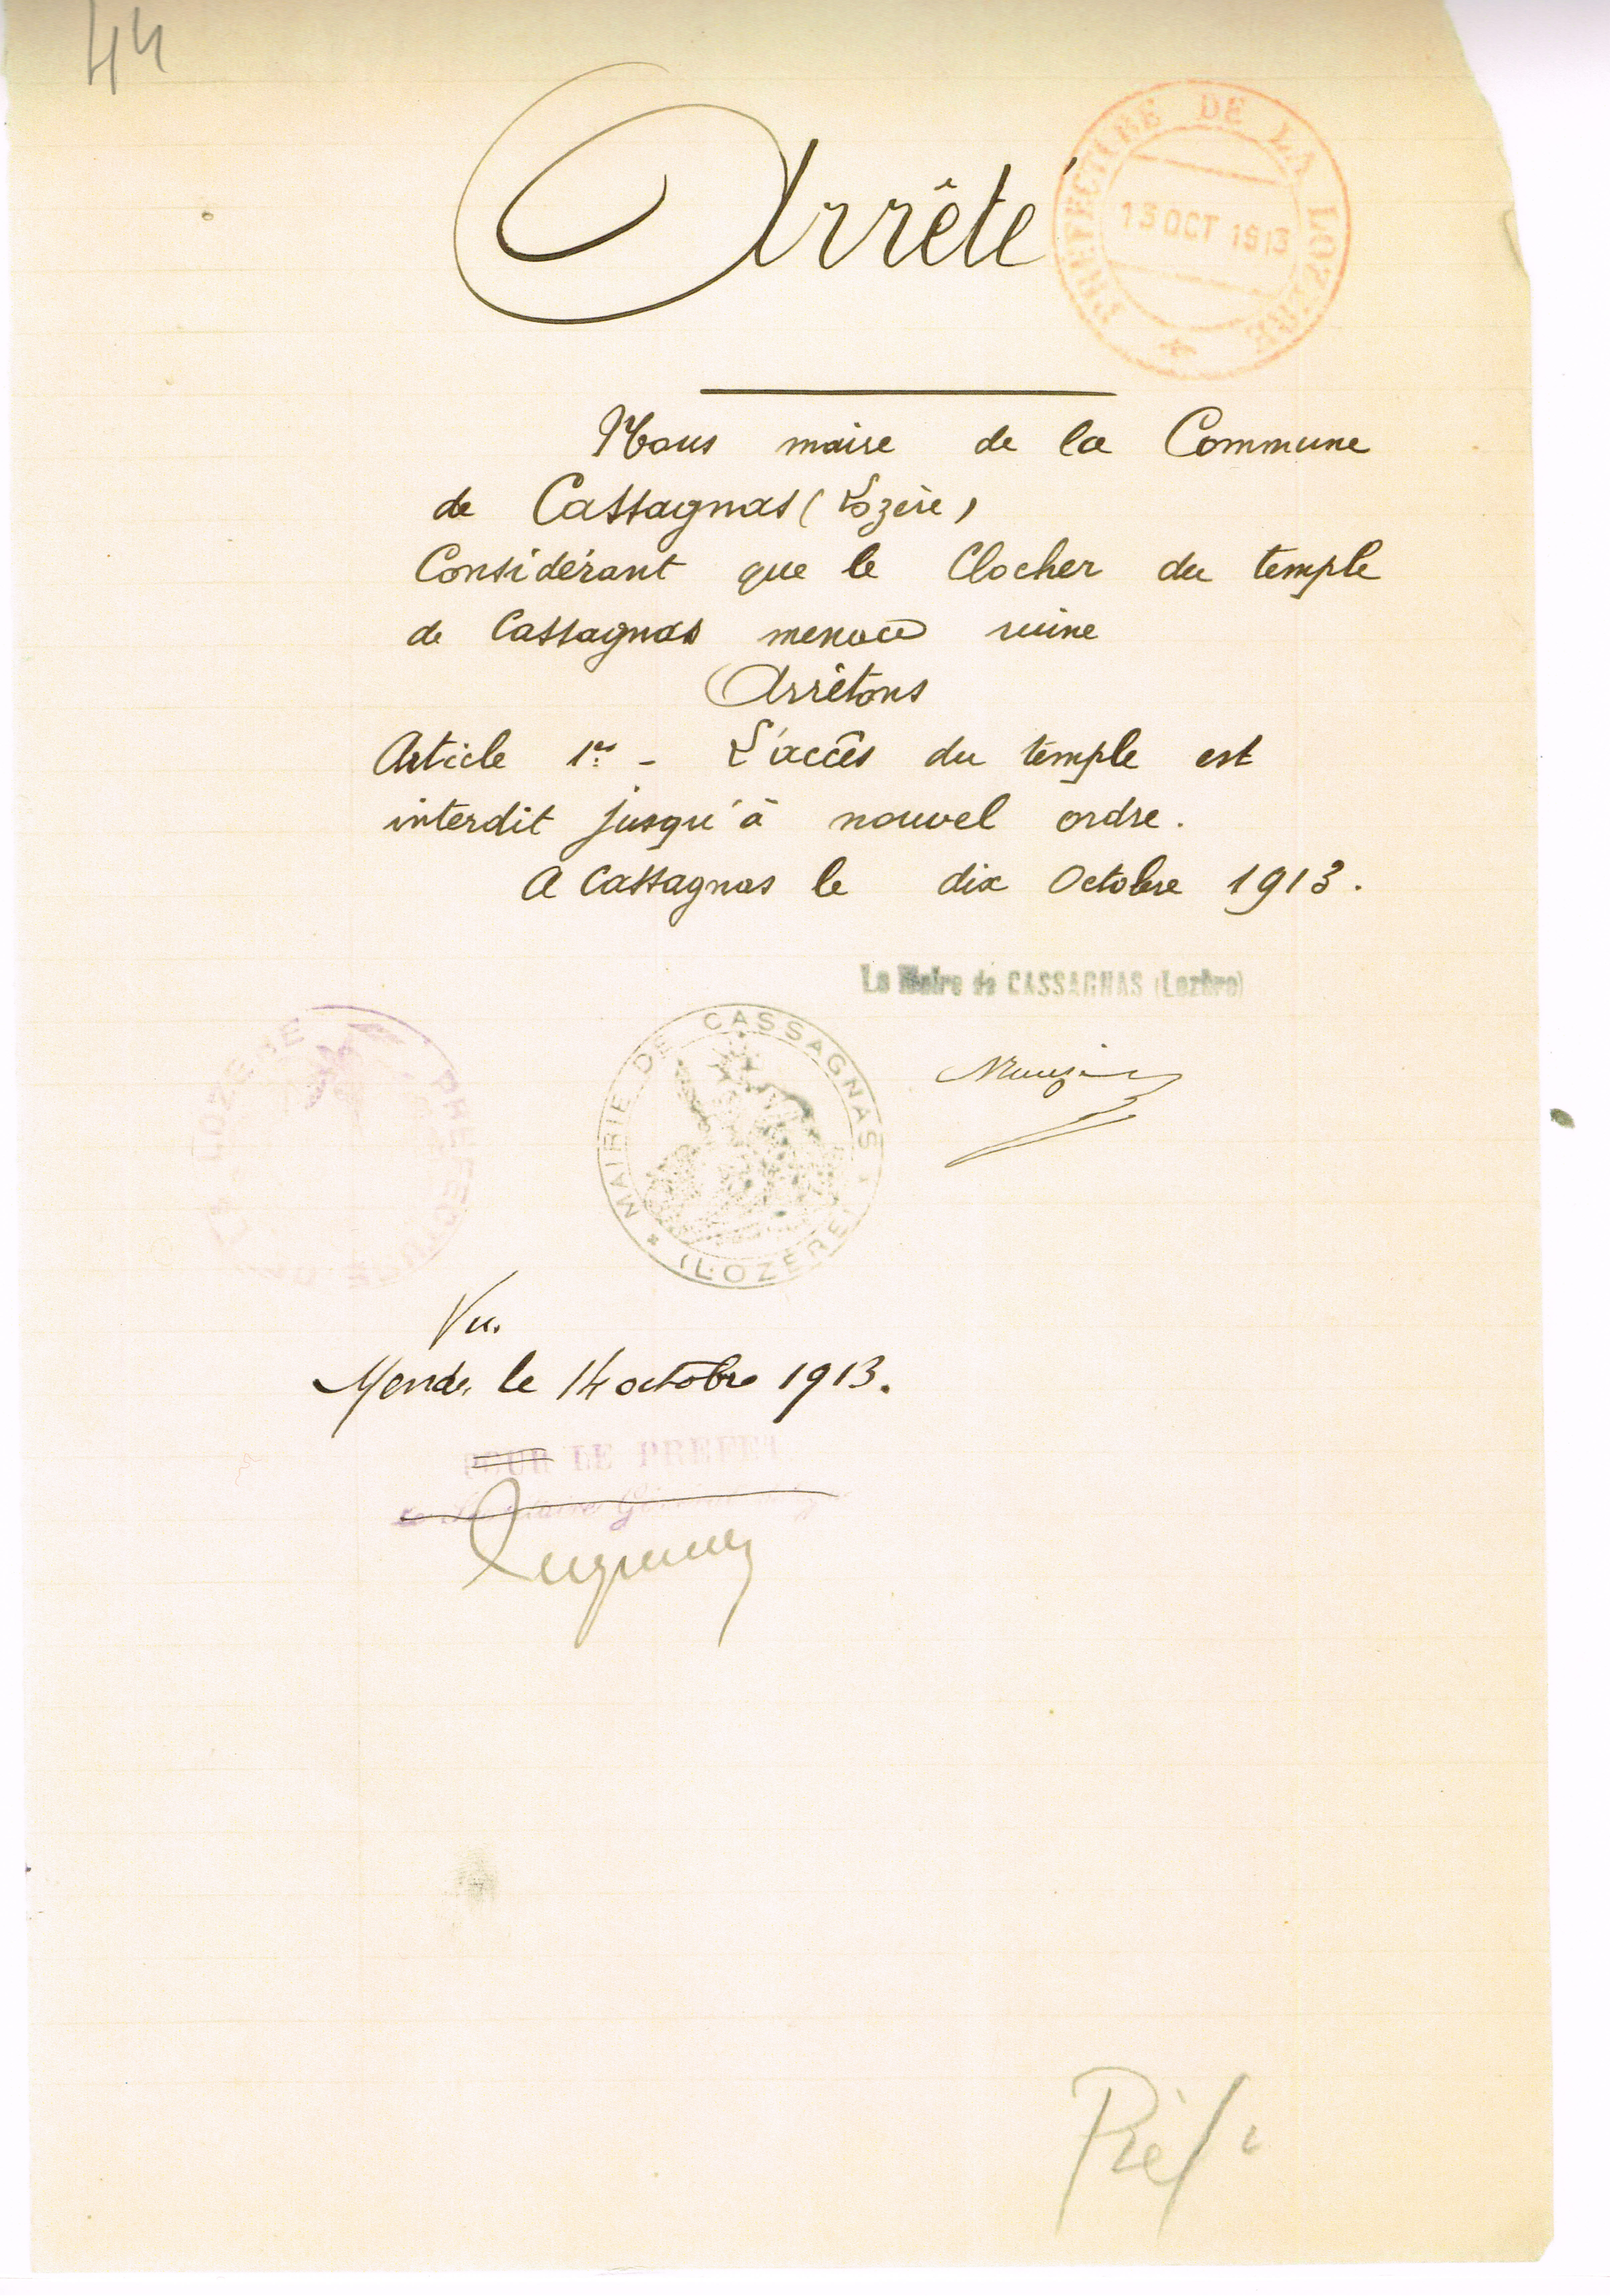 44
Arrêté
PREFECTURE DE LA LOZERE
13 OCT 1913
Nous maire de la Commune
de Cassagnas (Lozère)
Considérant que le Clocher du temple
de Cassagnas menace ruine
Arrêtons
Article 1er - L'accès du temple est
interdit jusqu'à nouvel ordre.
A Cassagnas le dix Octobre 1913.
Le Maire de CASSAGNAS (Lozère)
MAIRIE DE CASSAGNAS
(LOZERE)
PREFECTURE DE LA LOZERE
Vu.
Mende, le 14 octobre 1913.
POUR LE PREFET
Le Secrétaire Général
Préf